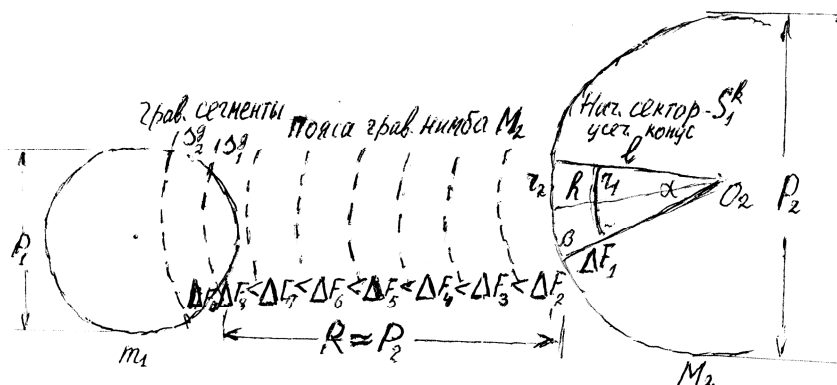 грав. сегменты
S₂ᵍ S₁ᵍ
Пояса грав. нимба M₂
Нач. сектор-S₁ᵏ
усеч. конус
l
r₂ h r₁ α O₂
β
ΔF₁
P₁
P₂
ΔF₉ ΔF₈<ΔF₇<ΔF₆<ΔF₅<ΔF₄<ΔF₃<ΔF₂
R ≈ P₂
m₁
M₂